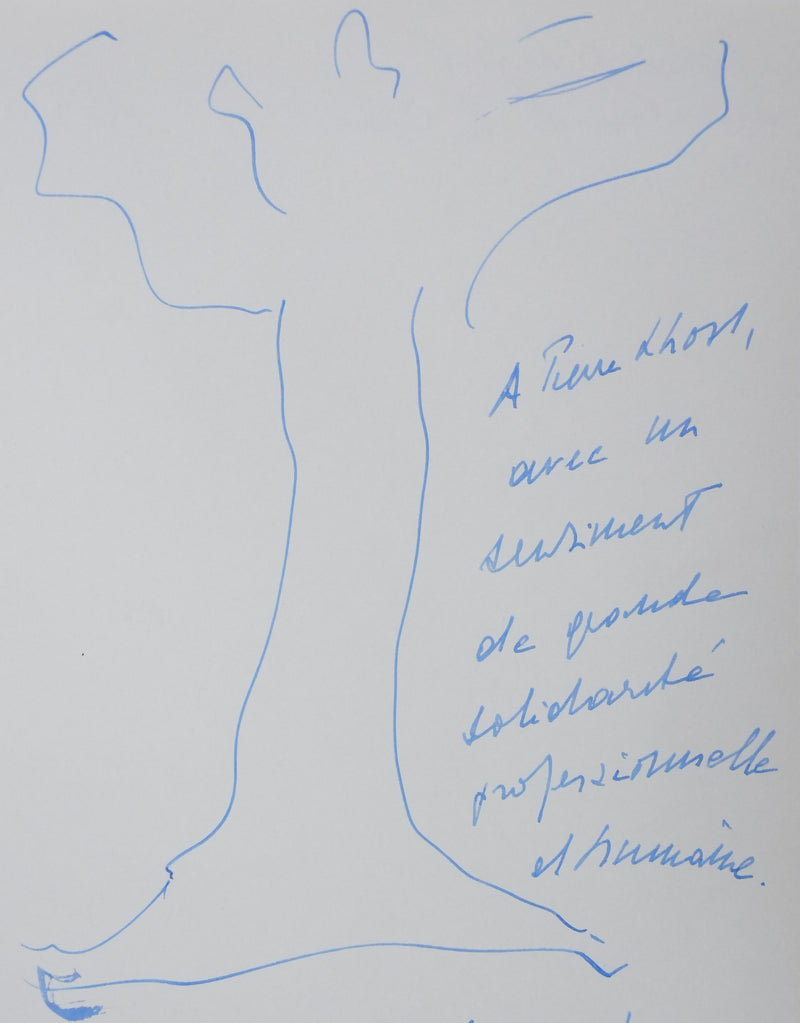 A Pierre Lhost,
avec un
sentiment
de grande
solidarité
professionnelle
et humaine.